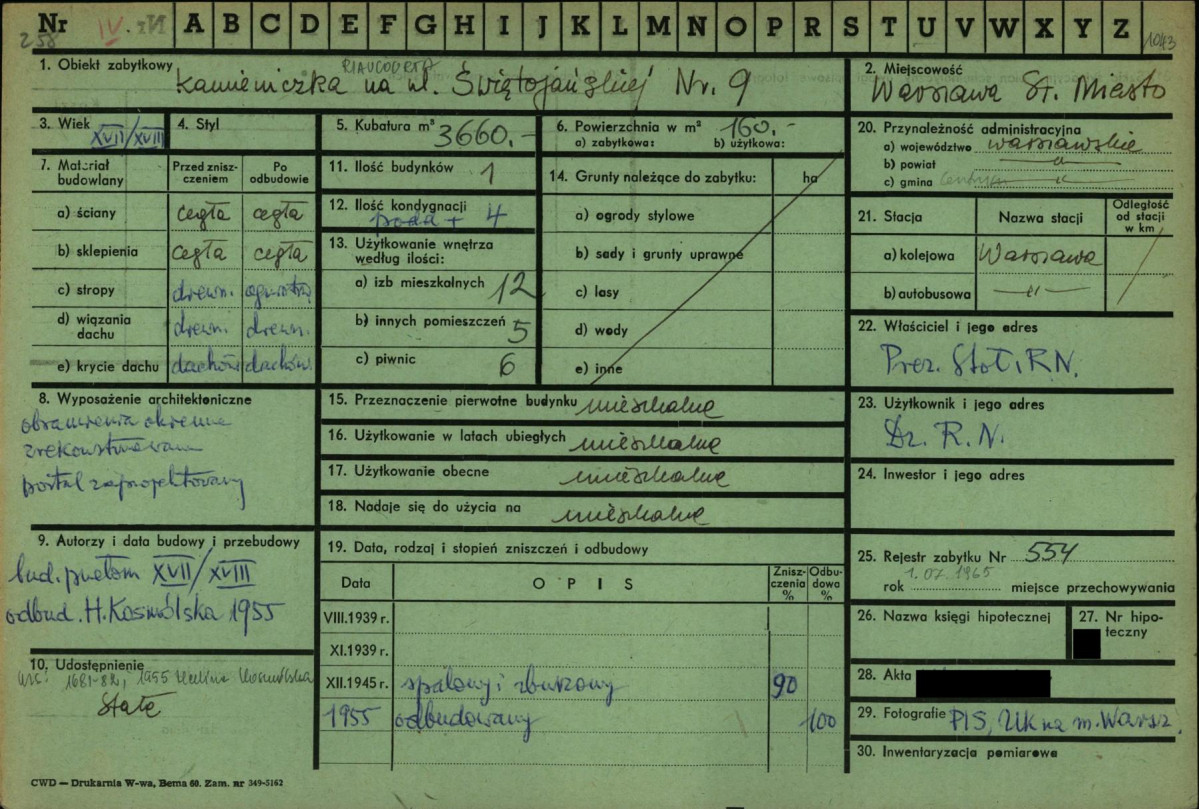 Nr IV. A B C D E F G H I J K L M N O P R S T U V W X Y Z
258
1043
1. Obiekt zabytkowy RIAUCOURTA
Kamieniczka na ul. Świętojańskiej Nr. 9
2. Miejscowość
Warszawa St. Miasto
3. Wiek
XVII/XVIII
4. Styl
5. Kubatura m³ 3660.-
6. Powierzchnia w m² 160.-
a) zabytkowa: b) użytkowa:
20. Przynależność administracyjna
a) województwo warszawskie
b) powiat —"—
c) gmina —"—
7. Materiał budowlany
Przed zniszczeniem
Po odbudowie
a) ściany cegła cegła
b) sklepienia cegła cegła
c) stropy drewn. ogniotrw.
d) wiązania dachu drewn. drewn.
e) krycie dachu dachów. dachów.
11. Ilość budynków 1
12. Ilość kondygnacji
+ 4
13. Użytkowanie wnętrza według ilości:
a) izb mieszkalnych 12
b) innych pomieszczeń 5
c) piwnic 6
14. Grunty należące do zabytku: ha
a) ogrody stylowe
b) sady i grunty uprawne
c) lasy
d) wody
e) inne
21. Stacja
Nazwa stacji
Odległość od stacji w km
a) kolejowa Warszawa
b) autobusowa —"—
22. Właściciel i jego adres
Prez. Stoł. R.N.
8. Wyposażenie architektoniczne
obramienia okienne
zrekonstruowane
portal zaprojektowany
15. Przeznaczenie pierwotne budynku mieszkalne
16. Użytkowanie w latach ubiegłych mieszkalne
17. Użytkowanie obecne mieszkalne
18. Nadaje się do użycia na mieszkalne
23. Użytkownik i jego adres
Dz. R.N.
24. Inwestor i jego adres
9. Autorzy i data budowy i przebudowy
bud. przełom XVII/XVIII
odbud. H. Kosmólska 1955
10. Udostępnienie
1681-82, 1955 Kosmólska
Stałe
19. Data, rodzaj i stopień zniszczeń i odbudowy
Data
OPIS
Zniszczenia %
Odbudowa %
VIII.1939 r.
XI.1939 r.
XII.1945 r. spalony i zburzony 90
1955 odbudowany 100
25. Rejestr zabytku Nr 554
rok 1.07.1965 miejsce przechowywania
26. Nazwa księgi hipotecznej
27. Nr hipoteczny
28. Akta
29. Fotografie PIS, UK na m. Warsz.
30. Inwentaryzacja pomiarowa
CWD — Drukarnia W-wa, Bema 60. Zam. nr 349-5162